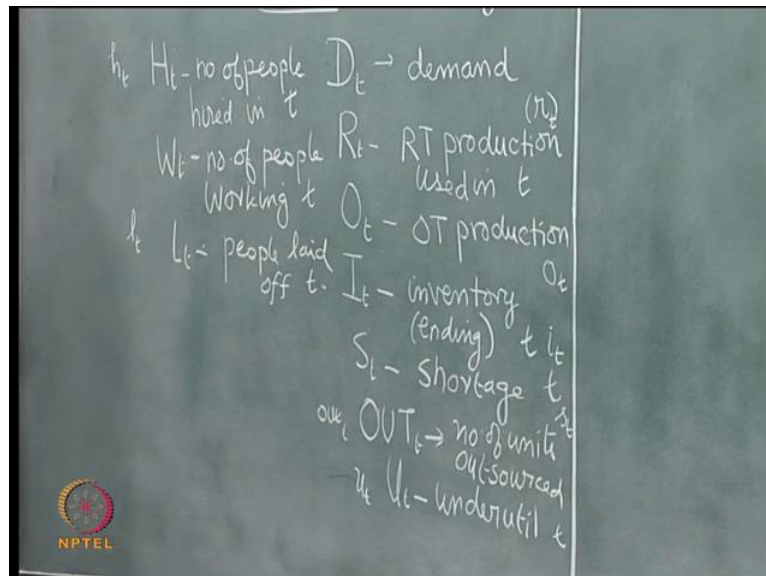 hₜ Hₜ - no of people
hired in t
Wₜ - no of people
working t
lₜ Lₜ - people laid
off t.
Dₜ → demand
(rₜ)
Rₜ - RT production
used in t
Oₜ - OT production
oₜ
Iₜ - inventory
(ending) t iₜ
Sₜ - Shortage t
sₜ
outₜ OUTₜ → no of units
outsourced
uₜ Uₜ - underutil t
NPTEL